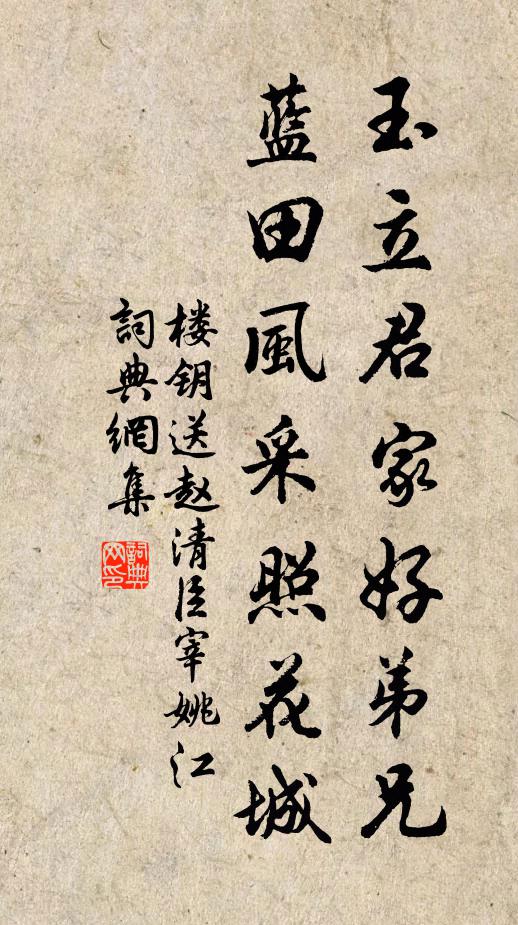 玉立君家好弟兄
藍田風采照花城
楼钥送赵清臣宰姚江
詞典網集
詞典
网印